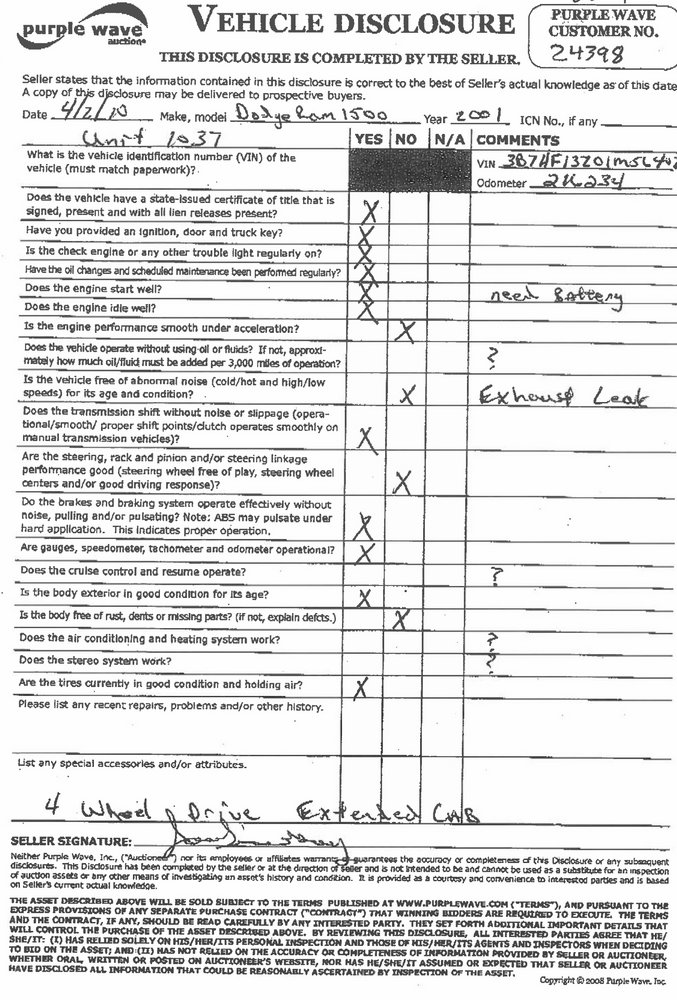 purple wave
auction®
VEHICLE DISCLOSURE
THIS DISCLOSURE IS COMPLETED BY THE SELLER.
PURPLE WAVE
CUSTOMER NO.
24398
Seller states that the information contained in this disclosure is correct to the best of Seller's actual knowledge as of this date
A copy of this disclosure may be delivered to prospective buyers.
Date 4/2/10 Make, model Dodge Ram 1500 Year 2001 ICN No., if any
Unit 1037
YES NO N/A COMMENTS
What is the vehicle identification number (VIN) of the
vehicle (must match paperwork)?
VIN
Odometer
Does the vehicle have a state-issued certificate of title that is
signed, present and with all lien releases present? X
Have you provided an ignition, door and truck key? X
Is the check engine or any other trouble light regularly on? X
Have the oil changes and scheduled maintenance been performed regularly? X
Does the engine start well? X need Battery
Does the engine idle well? X
Is the engine performance smooth under acceleration? X
Does the vehicle operate without using oil or fluids? If not, approxi-
mately how much oil/fluid must be added per 3,000 miles of operation? ?
Is the vehicle free of abnormal noise (cold/hot and high/low
speeds) for its age and condition? X Exhaust Leak
Does the transmission shift without noise or slippage (opera-
tional/smooth/ proper shift points/clutch operates smoothly on
manual transmission vehicles)? X
Are the steering, rack and pinion and/or steering linkage
performance good (steering wheel free of play, steering wheel
centers and/or good driving response)? X
Do the brakes and braking system operate effectively without
noise, pulling and/or pulsating? Note: ABS may pulsate under
hard application. This indicates proper operation. X
Are gauges, speedometer, tachometer and odometer operational? X
Does the cruise control and resume operate? ?
Is the body exterior in good condition for its age? X
Is the body free of rust, dents or missing parts? (if not, explain defcts.) X
Does the air conditioning and heating system work? ?
Does the stereo system work? ?
Are the tires currently in good condition and holding air? X
Please list any recent repairs, problems and/or other history.
List any special accessories and/or attributes.
4 Wheel Drive Extended CAB
SELLER SIGNATURE:
Neither Purple Wave, Inc., ("Auctioneer") nor its employees or affiliates warrants or guarantees the accuracy or completeness of this Disclosure or any subsequent
disclosures. This Disclosure has been completed by the seller or at the direction of seller and is not intended to be and cannot be used as a substitute for an inspection
of auction assets or any other means of investigating an asset's history and condition. It is provided as a courtesy and convenience to interested parties and is based
on Seller's current actual knowledge.
THE ASSET DESCRIBED ABOVE WILL BE SOLD SUBJECT TO THE TERMS PUBLISHED AT WWW.PURPLEWAVE.COM ("TERMS"), AND PURSUANT TO THE
EXPRESS PROVISIONS OF ANY SEPARATE PURCHASE CONTRACT ("CONTRACT") THAT WINNING BIDDERS ARE REQUIRED TO EXECUTE. THE TERMS
AND THE CONTRACT, IF ANY, SHOULD BE READ CAREFULLY BY ANY INTERESTED PARTY. THEY SET FORTH ADDITIONAL IMPORTANT DETAILS THAT
WILL CONTROL THE PURCHASE OF THE ASSET DESCRIBED ABOVE. BY REVIEWING THIS DISCLOSURE, ALL INTERESTED PARTIES AGREE THAT HE/
SHE/IT: (I) HAS RELIED SOLELY ON HIS/HER/ITS PERSONAL INSPECTION AND THOSE OF HIS/HER/ITS AGENTS AND INSPECTORS WHEN DECIDING
TO BID ON THE ASSET; AND (II) HAS NOT RELIED ON THE ACCURACY OR COMPLETENESS OF INFORMATION PROVIDED BY SELLER OR AUCTIONEER,
WHETHER ORAL, WRITTEN OR POSTED ON AUCTIONEER'S WEBSITE, NOR HAS HE/SHE/IT ASSUMED OR EXPECTED THAT SELLER OR AUCTIONEER
HAVE DISCLOSED ALL INFORMATION THAT COULD BE REASONABLY ASCERTAINED BY INSPECTION OF THE ASSET.
Copyright © 2008 Purple Wave, Inc.